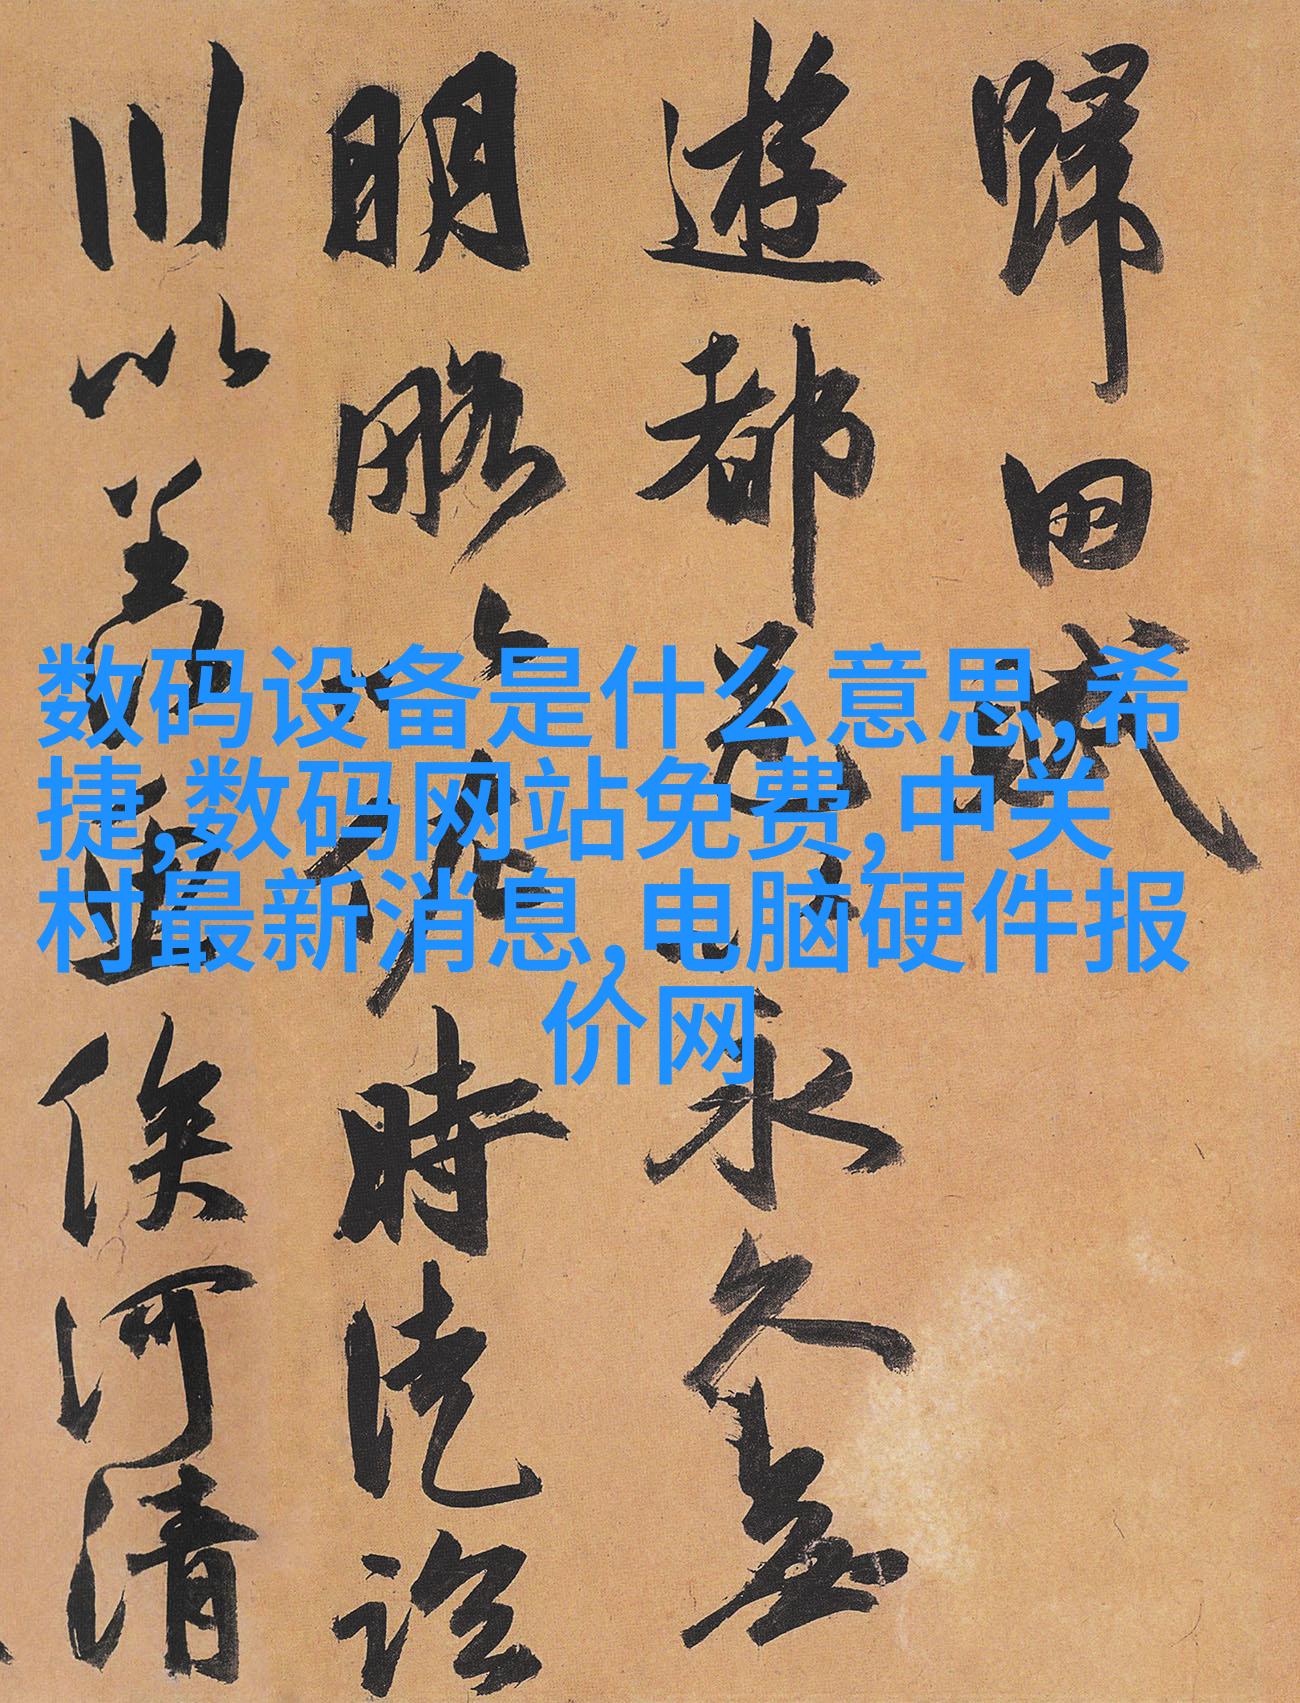 歸田賦
遊都邑以永久無
明略以佐時徒臨
川以羡魚俟河清
数码设备是什么意思,希
捷,数码网站免费,中关
村最新消息,电脑硬件报
价网